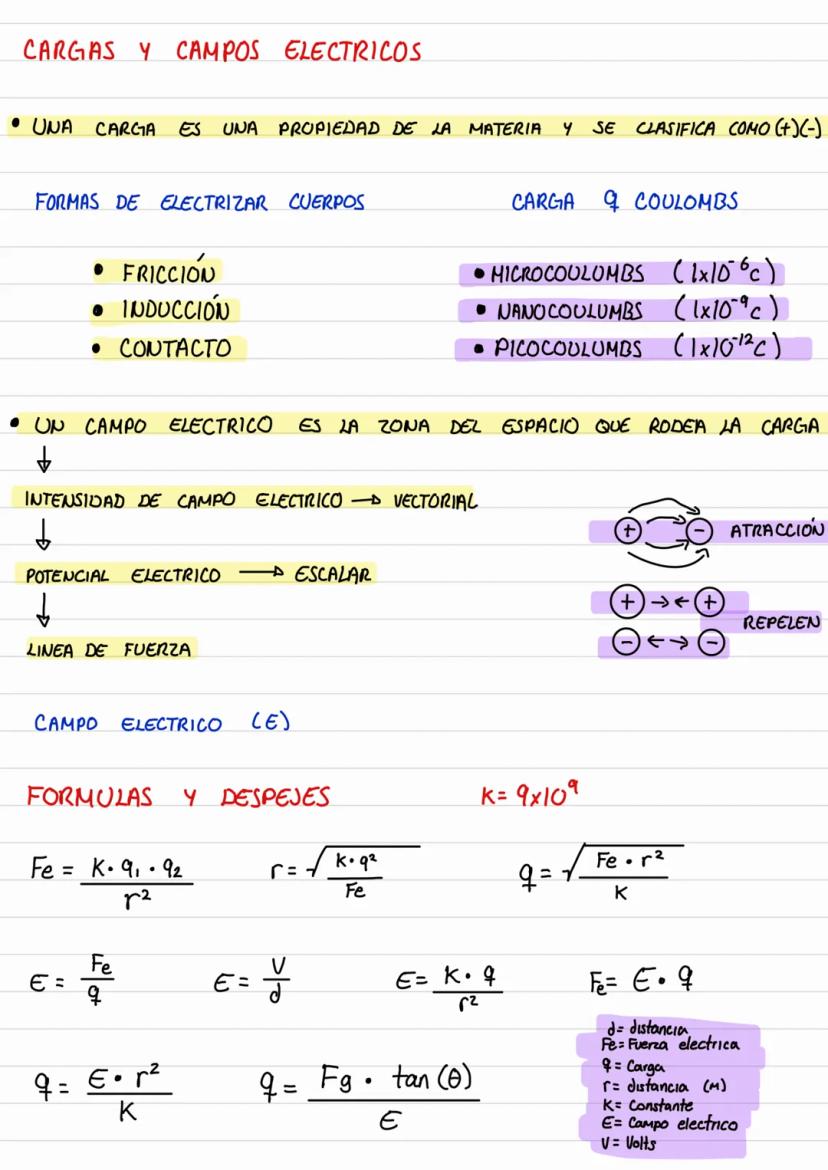 CARGAS Y CAMPOS ELECTRICOS
• UNA CARGA ES UNA PROPIEDAD DE LA MATERIA Y SE CLASIFICA COMO (+)(-)
FORMAS DE ELECTRIZAR CUERPOS
• FRICCIÓN
• INDUCCIÓN
• CONTACTO
CARGA q COULOMBS
• MICROCOULOMBS (1x10⁻⁶c)
• NANOCOULUMBS (1x10⁻⁹c)
• PICOCOULUMBS (1x10⁻¹²c)
• UN CAMPO ELECTRICO ES LA ZONA DEL ESPACIO QUE RODEA LA CARGA
↓
INTENSIDAD DE CAMPO ELECTRICO → VECTORIAL
↓
POTENCIAL ELECTRICO → ESCALAR
↓
LINEA DE FUERZA
+ - ATRACCIÓN
+ → ← +
REPELEN
- ← → -
CAMPO ELECTRICO (E)
FORMULAS Y DESPEJES K= 9x10⁹
Fe = K・q₁・q₂ / r² r = √(K・q² / Fe) q = √(Fe・r² / K)
E = Fe / q E = V / d E = K・q / r² Fe= E・q
q = E・r² / K q = Fg・tan(θ) / E
d= distancia
Fe= Fuerza electrica
q = Carga
r= distancia (M)
K= Constante
E= Campo electrico
V= Volts